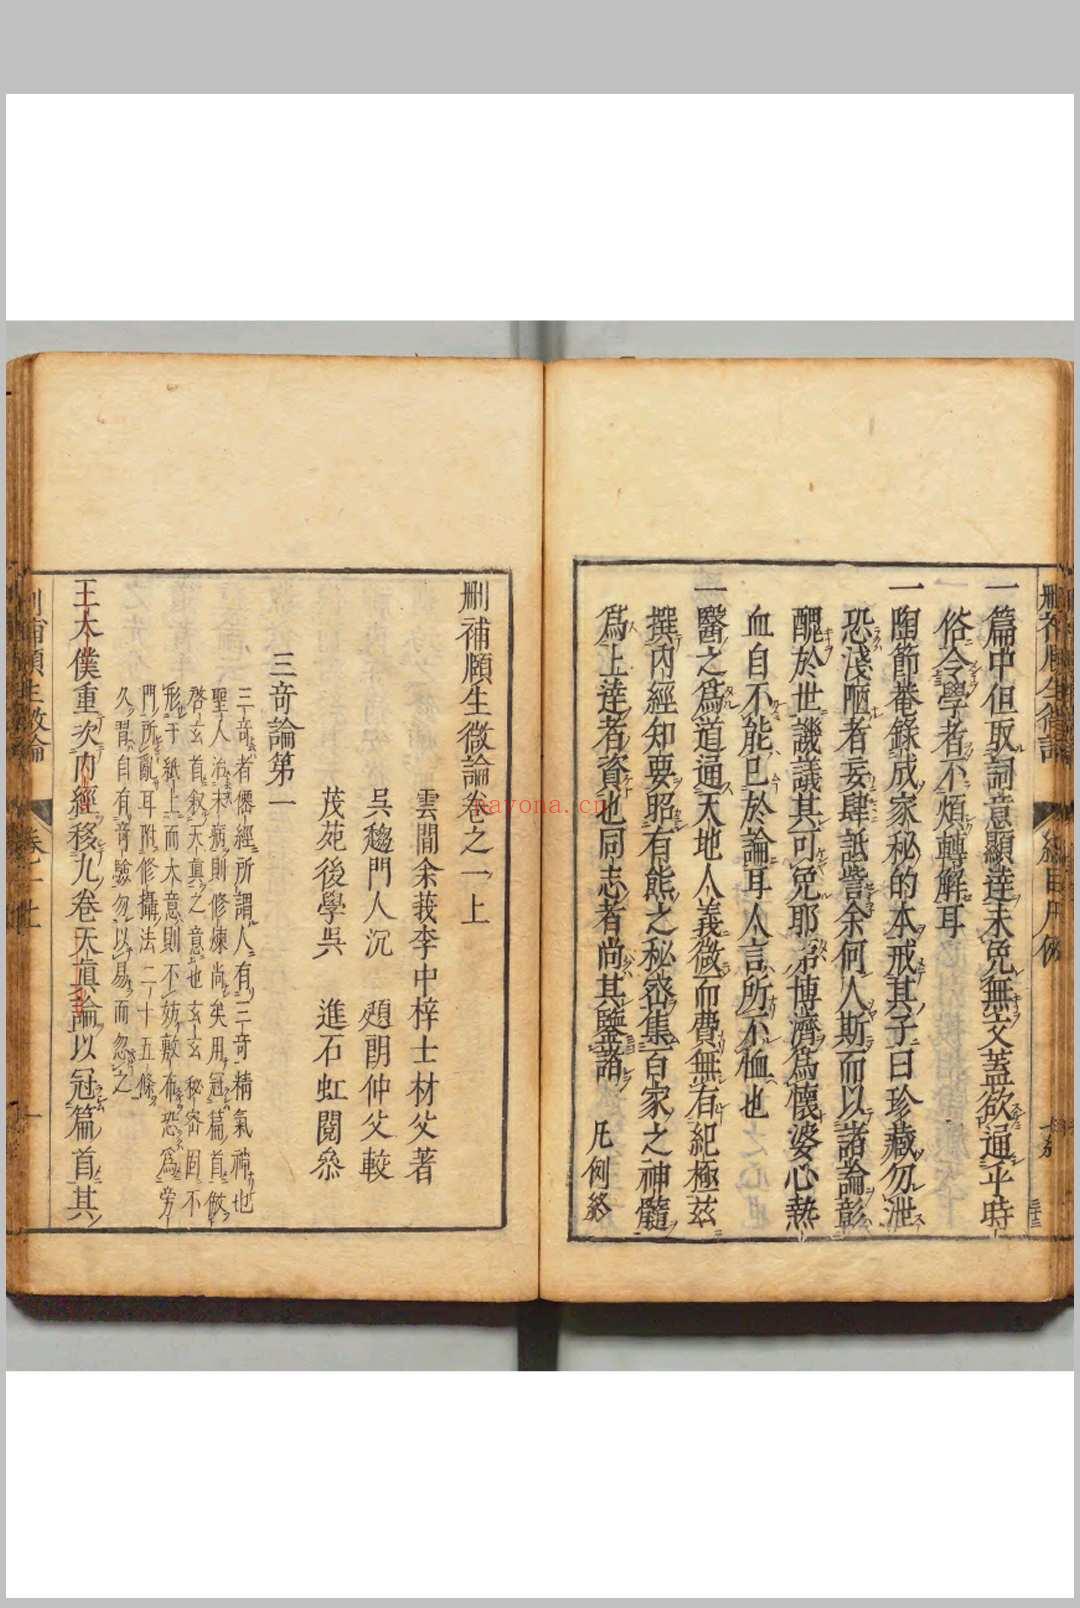 一篇中但取詞意顯達未免無文蓋欲通乎時
俗令學者不煩轉解耳
一陶節菴錄成家秘的本戒其子曰珍藏勿泄
恐淺陋者妄肆詆訾余何人斯而以諸論彰
醜於世譏議其可免耶第博濟爲懷婆心熱
血自不能已於論耳人言所不恤也
一醫之爲道通天地人義微而費無有紀極茲
撰內經知要昭有熊之秘密集百家之神髓
爲上達者資也同志者尚其鑒諸
凡例終
刪補頤生微論卷之一上
雲間余莪李中梓士材父著
吳趨門人沉 頲朗仲父較
茂苑後學吳 進石虹閱叅
三奇論第一
三奇者儒經所謂人有三奇精氣神也
聖人治未病則修煉尚矣用冠篇首倣
啓玄首叙天眞之意也玄玄秘密固不
形于紙上而大意則不妨敷布恐爲旁
門所亂耳附修攝法二十五條
久習自有奇驗勿以易而忽之
王太僕重次內經移九卷天眞論以冠篇首其
刪補頤生微論
卷之一上
nayona.cn